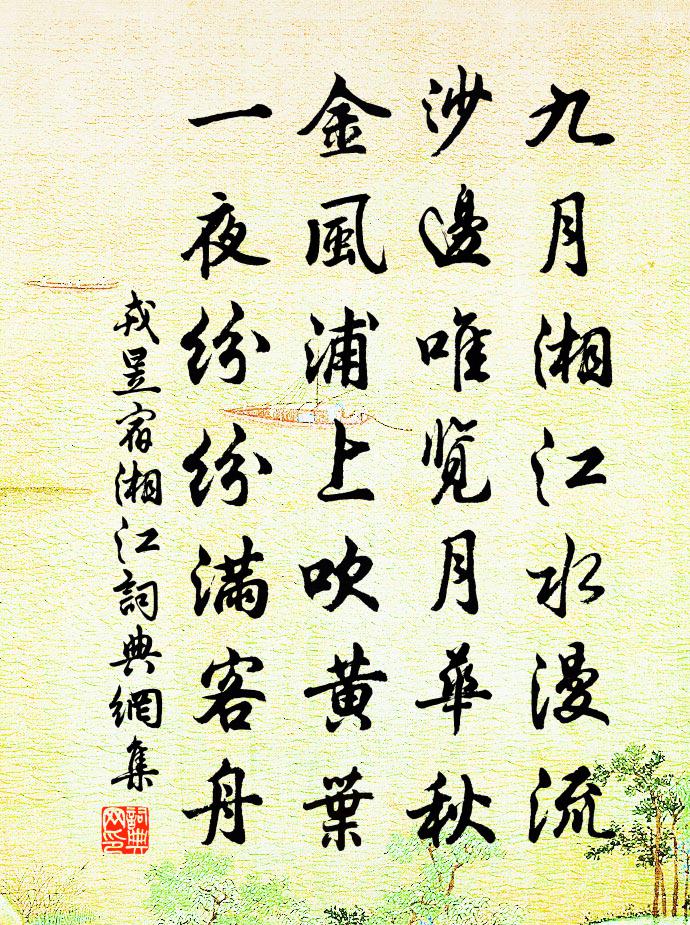 九月湘江水漫流
沙邊唯覽月華秋
金風浦上吹黃葉
一夜紛紛滿客舟
戎昱宿湘江詞典網集
詞典网印